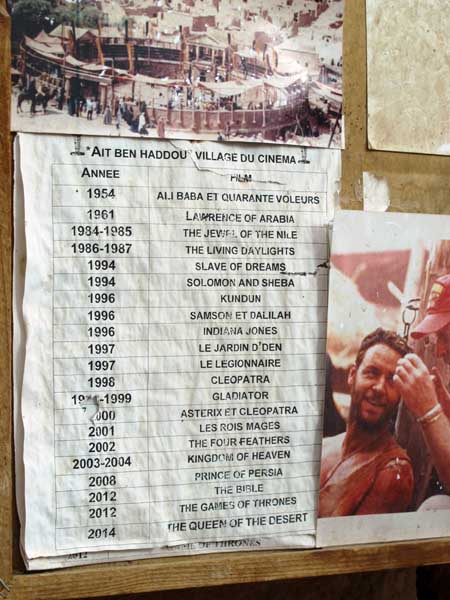 *AIT BEN HADDOU* VILLAGE DU CINEMA
ANNEE FILM
1954 ALI BABA ET QUARANTE VOLEURS
1961 LAWRENCE OF ARABIA
1984-1985 THE JEWEL OF THE NILE
1986-1987 THE LIVING DAYLIGHTS
1994 SLAVE OF DREAMS
1994 SOLOMON AND SHEBA
1996 KUNDUN
1996 SAMSON ET DALILAH
1996 INDIANA JONES
1997 LE JARDIN D'DEN
1997 LE LEGIONNAIRE
1998 CLEOPATRA
GLADIATOR
ASTERIX ET CLEOPATRA
2001 LES ROIS MAGES
2002 THE FOUR FEATHERS
2003-2004 KINGDOM OF HEAVEN
2008 PRINCE OF PERSIA
2012 THE BIBLE
2012 THE GAMES OF THRONES
2014 THE QUEEN OF THE DESERT
2012 OF THRONES